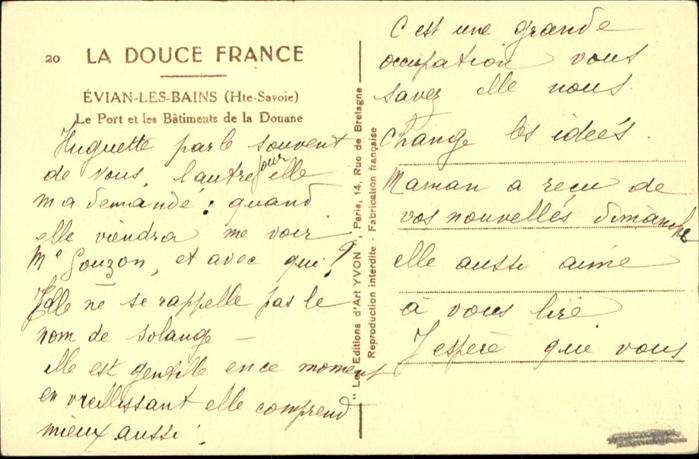 20 LA DOUCE FRANCE
ÉVIAN-LES-BAINS (Hte-Savoie)
Le Port et les Bâtiments de la Douane
Huguette parle souvent
de vous, l'autre jour elle
m a demandé : quand
elle viendra me voir
Me Gouzon, et avec qui ?
Elle ne se rappelle pas le
nom de Solange —
elle est gentille en ce moment
en vieillissant elle comprend
mieux aussi !
"Les Editions d'Art YVON", Paris, 14, Rue de Bretagne
Reproduction interdite - Fabrication française
C est une grande
occupation vous
savez elle nous
change les idées.
Maman a reçu de
vos nouvelles dimanche
elle aussi aime
à vous lire
J espère que vous